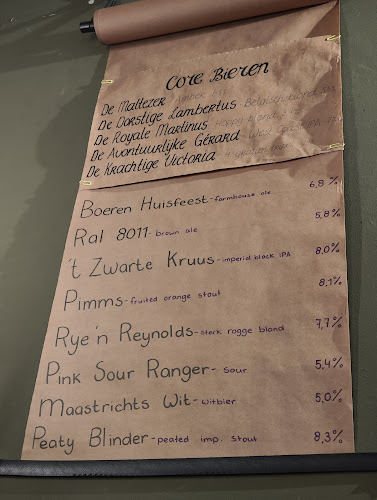 Core Bieren
De Maltezer Amber 6,5
De Dorstige Lambertus Belgisch blond
De Royale Martinus Hoppy blond
De Avontuurlijke Gérard West Coast IPA
De Krachtige Victoria
Boeren Huisfeest - farmhouse ale 6,8%
Ral 8011 - brown ale 5,8%
't Zwarte Kruus - imperial black IPA 8,0%
Pimms - fruited orange stout 8,1%
Rye 'n Reynolds - sterk rogge blond 7,7%
Pink Sour Ranger - sour 5,4%
Maastrichts Wit - witbier 5,0%
Peaty Blinder - peated imp. stout 8,3%